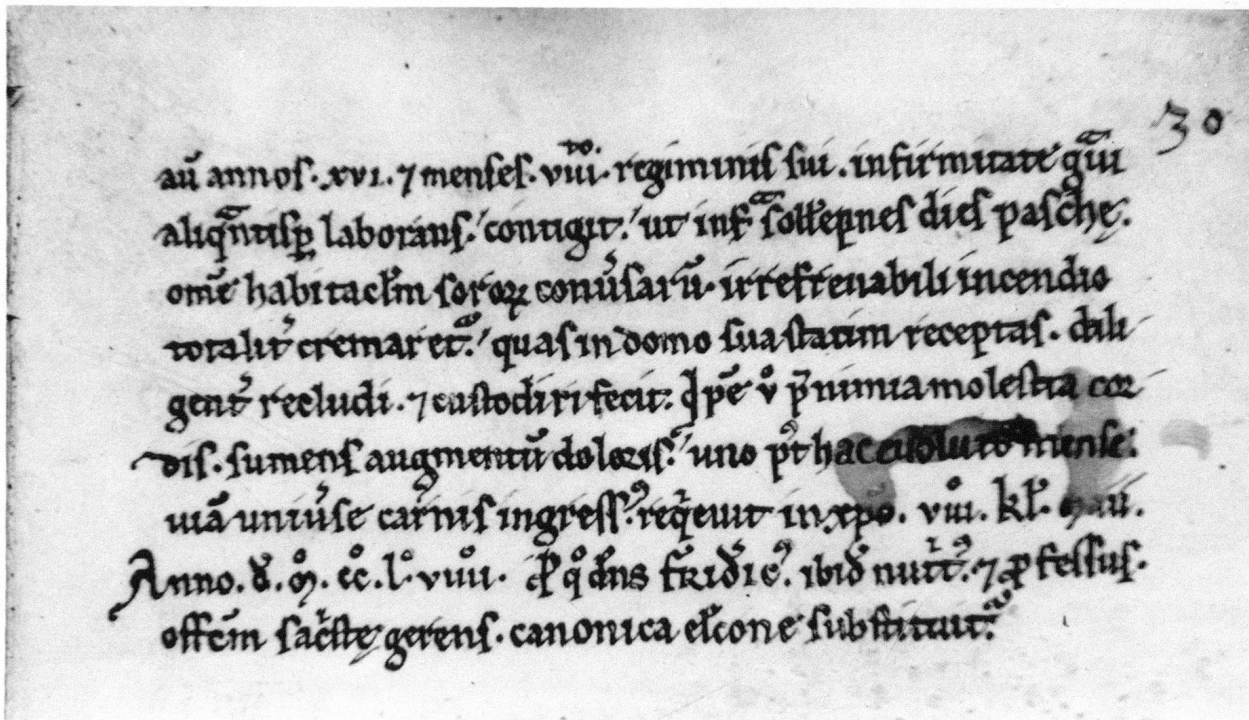 30
aū annos. xvi. ⁊ menses. viiii. regiminis sui. infirmitate gͣui
aliqͣntisꝑ laborans. contigit. ut infͣ sollēpnes dies paschę.
om̄e habitacl̄m soroꝝ conūsarū. irrefrenabili incendio
totalit᷑ cremaret᷑. quas in domo sua statim receptas. dili
gent᷑ recludi. ⁊ custodiri fecit. Ip̄e v̊ p̄ nimia molestia cor
dis. sumens augmentū doloris. uno p᷒t hac euoluto mense.
uiā uniūse carnis ingress᷒. reqͥeuit in xp̄o. viii. kl̄. maii.
Anno. d̊. m̊. cc̊. l̊. viiii. ꝓ qͦ dn̄s frider̄ic᷒. ibid̄ nutͥt᷒. ⁊ ꝓfessus.
offēm sacͥste gerens. canonica el̄cone substituit᷑.